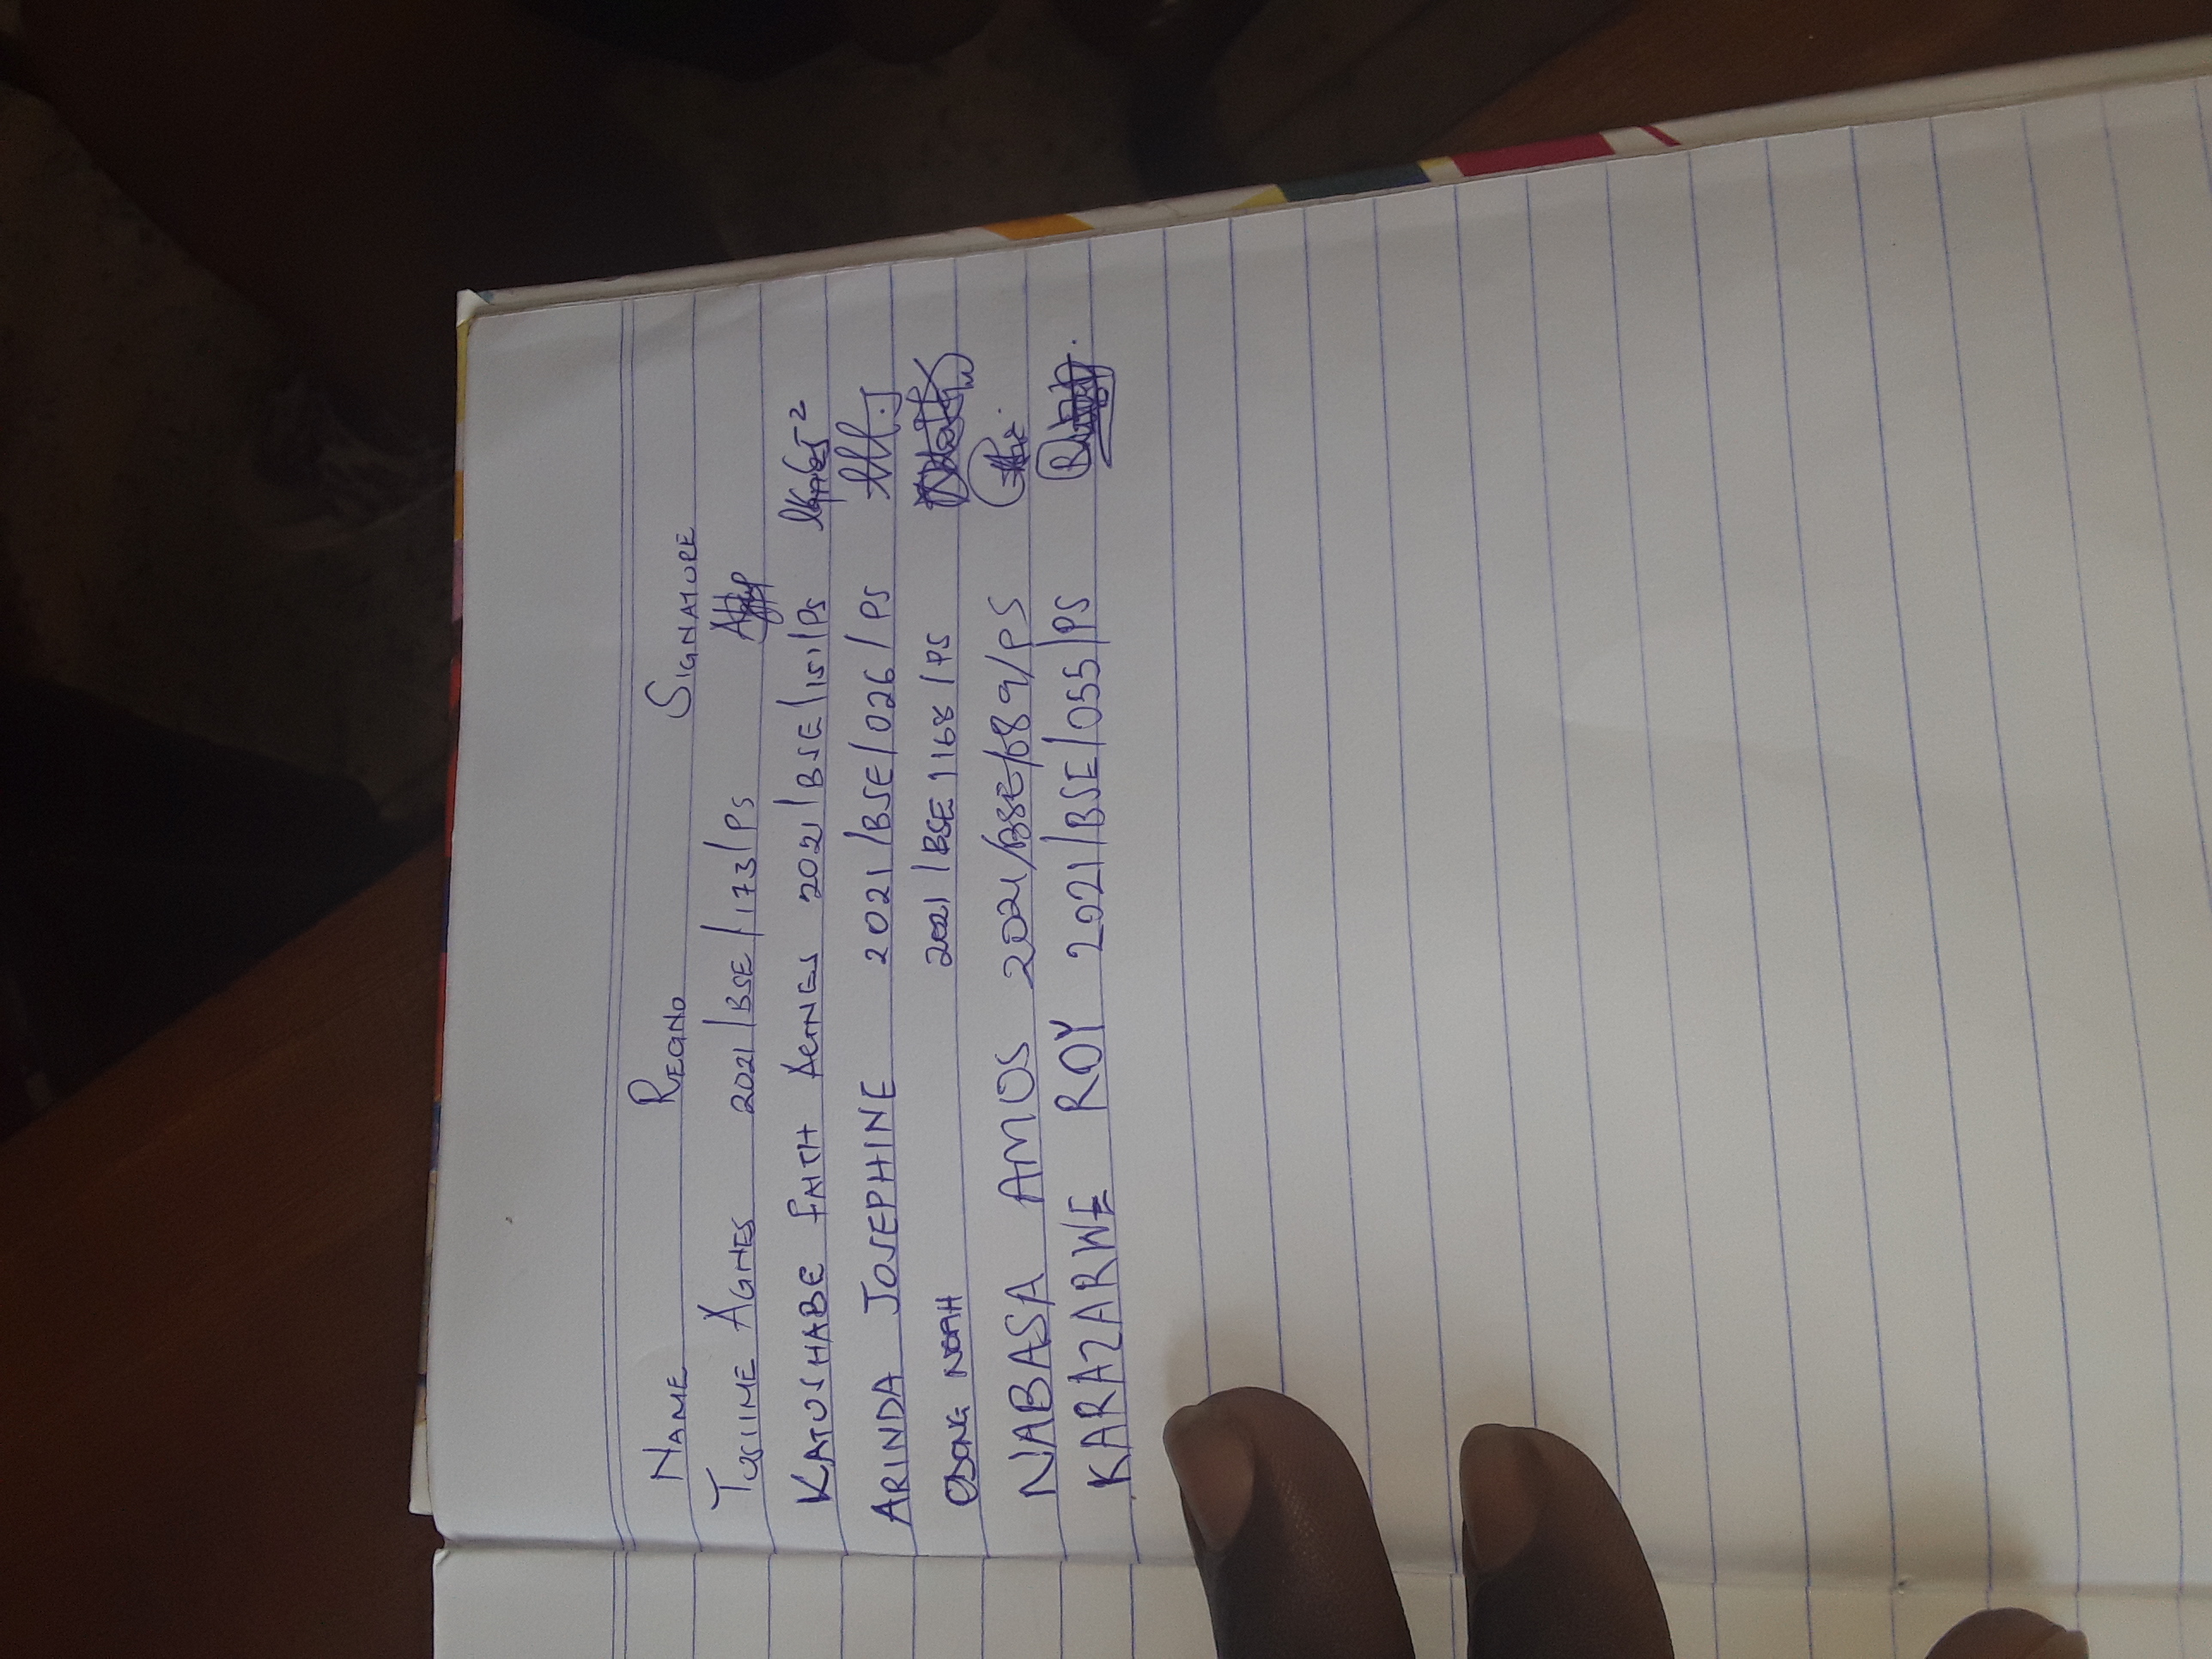 NAME REGNO SIGNATURE
TUSIIME AGNES 2021/BSE/173/PS
KATUSHABE FAITH AGNES 2021/BSE/151/PS
ARINDA JOSEPHINE 2021/BSE/026/PS
NOAH 2021/BSE/168/PS
NABASA AMOS 2021/BSE/089/PS
KARAZARWE ROY 2021/BSE/055/PS